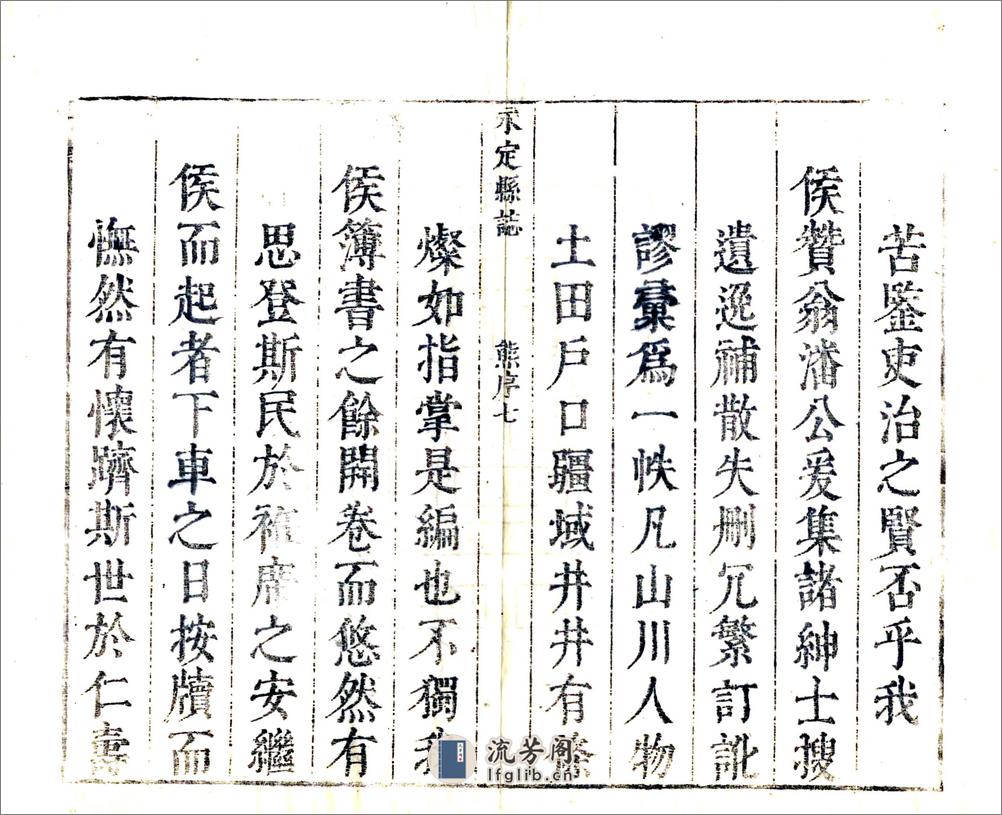 苦鑒吏治之賢否乎我
侯贊翁潘公爰集諸紳士搜
遺逸補散失删冗繁訂訛
謬彙爲一帙凡山川人物
土田戶口疆域井井有條
永定縣誌
熊序七
燦如指掌是編也不獨我
侯簿書之餘開卷而悠然有
思登斯民於袵席之安繼
侯而起者下車之日按牘而
憮然有懷躋斯世於仁壽
流芳阁
lfglib.cn